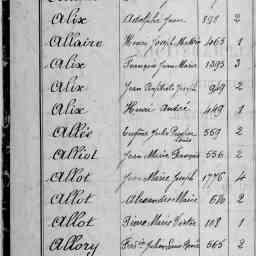 Alix Adolphe Jean 198 2
Allaire Henri Joseph Mathⁱⁿ 465 1
Alix François Jean Marie 1393 3
Alix Jean Baptiste Joseph 949 2
Alix Henri André 449 1
Allée Eugène Jules 559 2
Alliot Jean Marie François 556 2
Allot Jean Marie Joseph 1776 4
Allot Alexandre Marie 2
Allot Pierre Marie 108 1
Allory 565 2